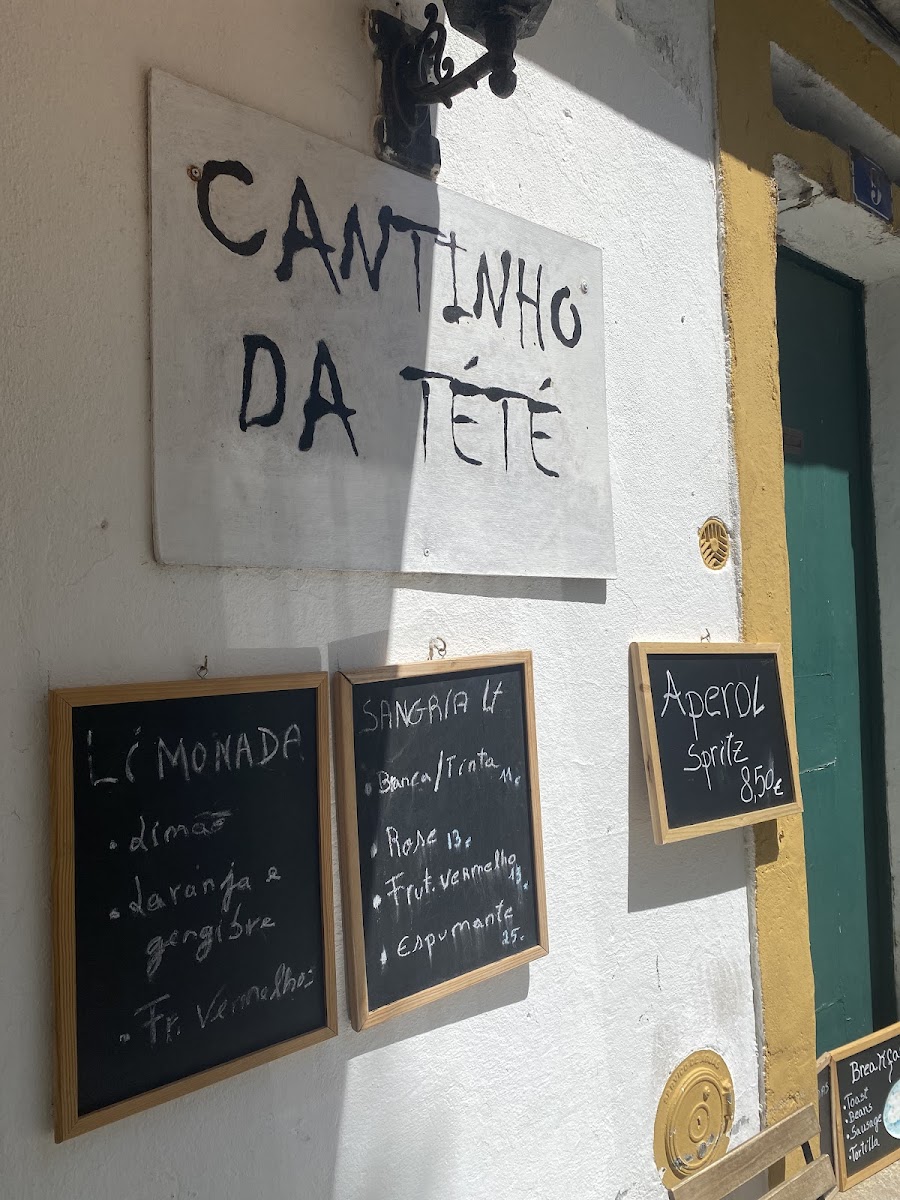 CANTINHO
DA TÉTÉ
5
LiMONADA
• Limão
• Laranja e
gengibre
• Fr. Vermelhos
SANGRIA Lt
• Branca/Tinta 11€
• Rose 13€
• Frut. vermelho 13€
• Espumante
25€
AperOL
Spritz
8,50€
Breakfa
• Toast
• Beans
• Sausage
• Tortilla